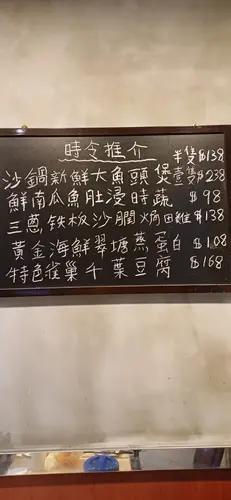 時令推介
半隻$138
沙鍋新鮮大魚頭煲壹隻$238
鮮南瓜魚肚浸時蔬 $98
三蔥鉄板沙膶焗田雞 $138
黃金海鮮翠塘蒸蛋白 $108
特色雀巢千葉豆腐 $168